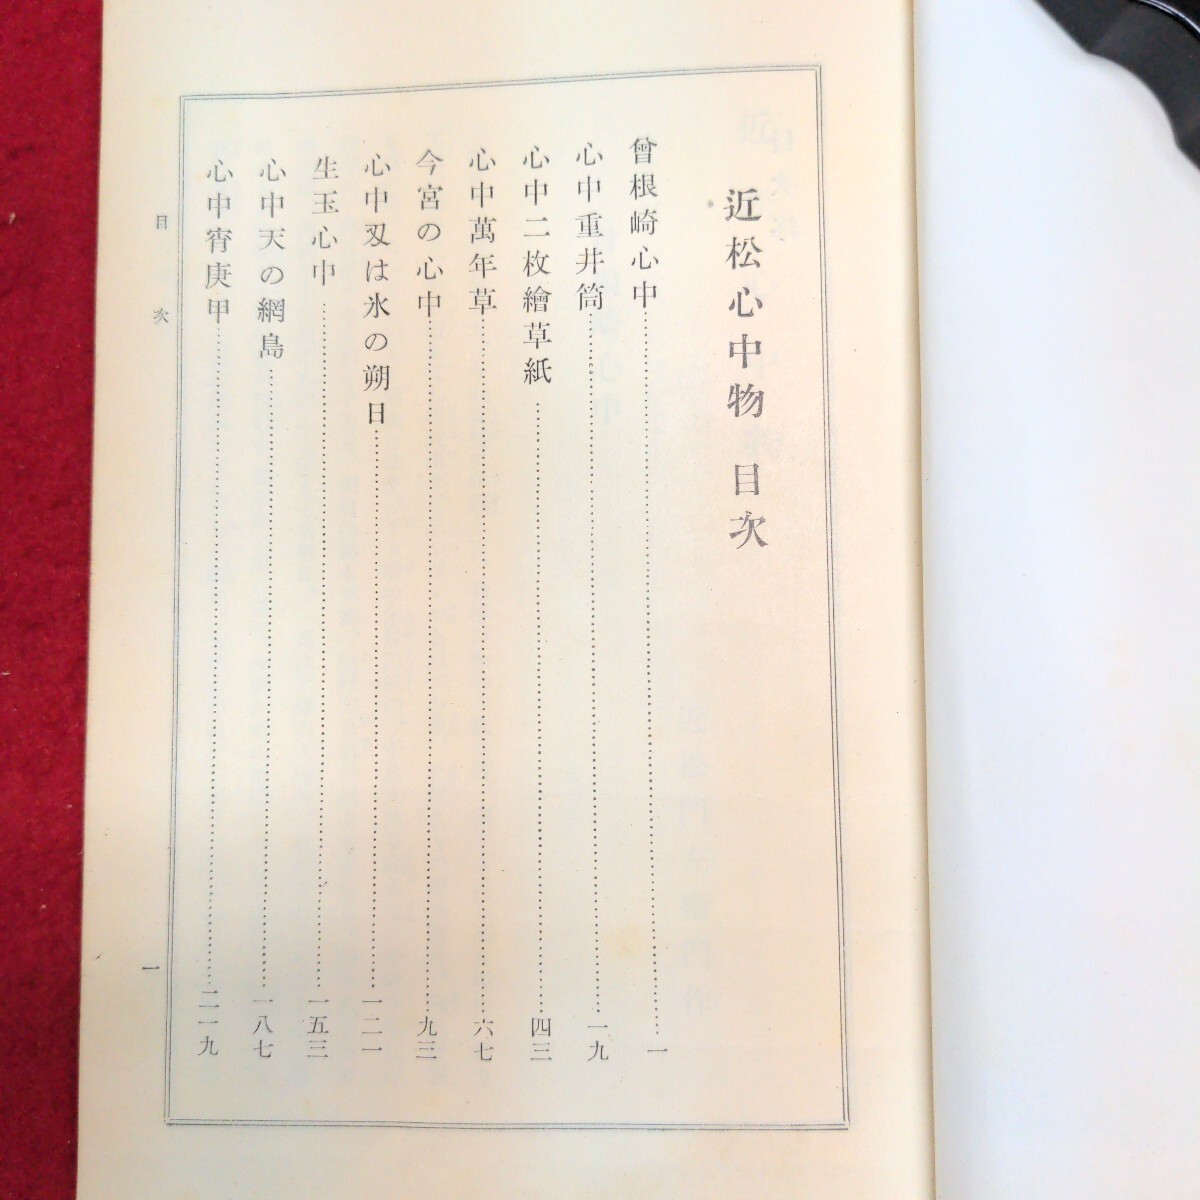 近松心中物 目次
曾根崎心中……一
心中重井筒……一九
心中二枚繪草紙……四三
心中萬年草……六七
今宮の心中……九三
心中刄は氷の朔日……一二一
生玉心中……一五三
心中天の網島……一八七
心中宵庚甲……二一九
目次
一